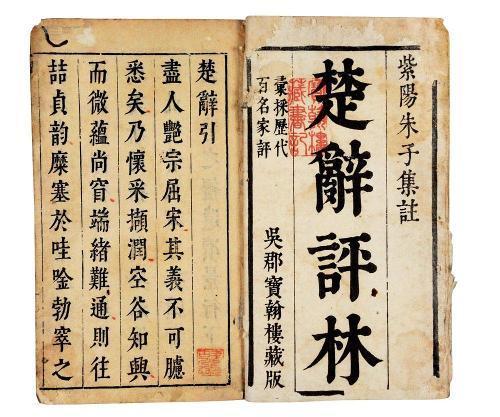 紫陽朱子集註
楚辭評林
彚採歷代
百名家評
吳郡寶翰樓藏版
楚辭引
盡人艷宗屈宋其義不可臆
悉矣乃懷采擷潤空谷知興
而微蘊尚窅端緒難通則往
詰貞韵糜塞於哇唫勃窣之